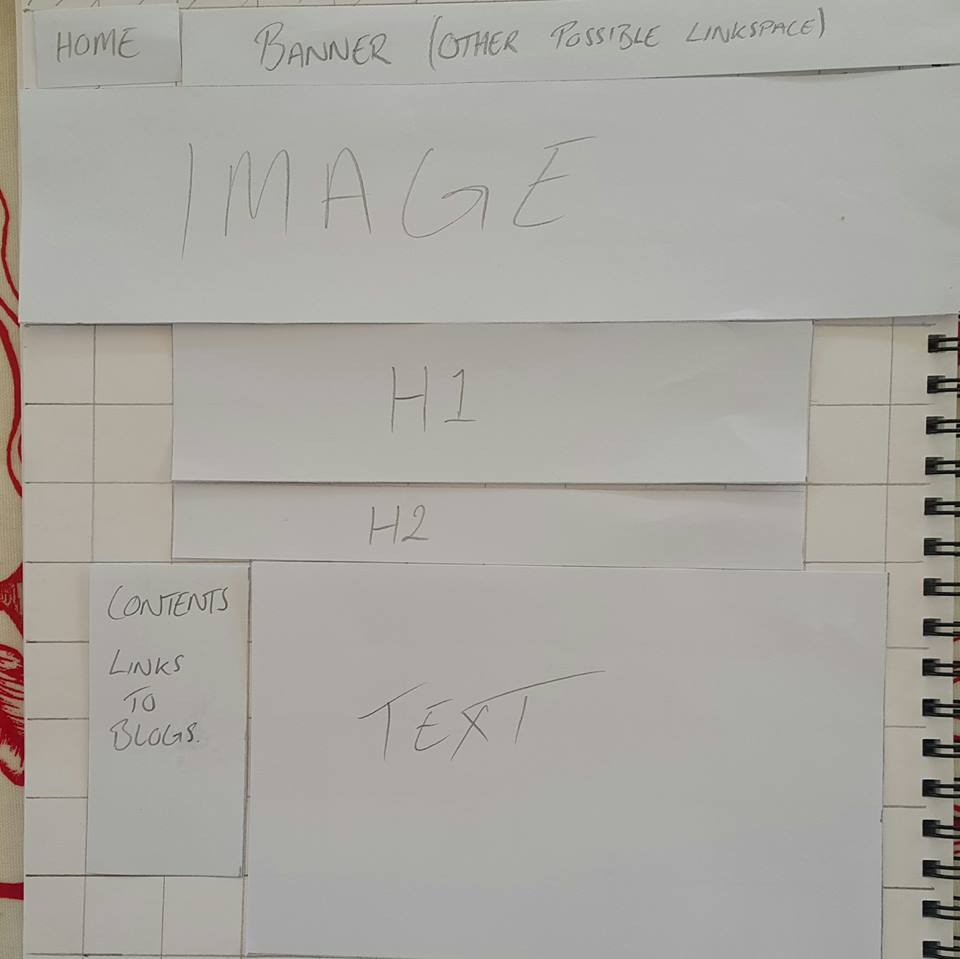 HOME
BANNER (OTHER POSSIBLE LINKSPACE)
IMAGE
H1
H2
CONTENTS
LINKS
TO
BLOGS.
TEXT